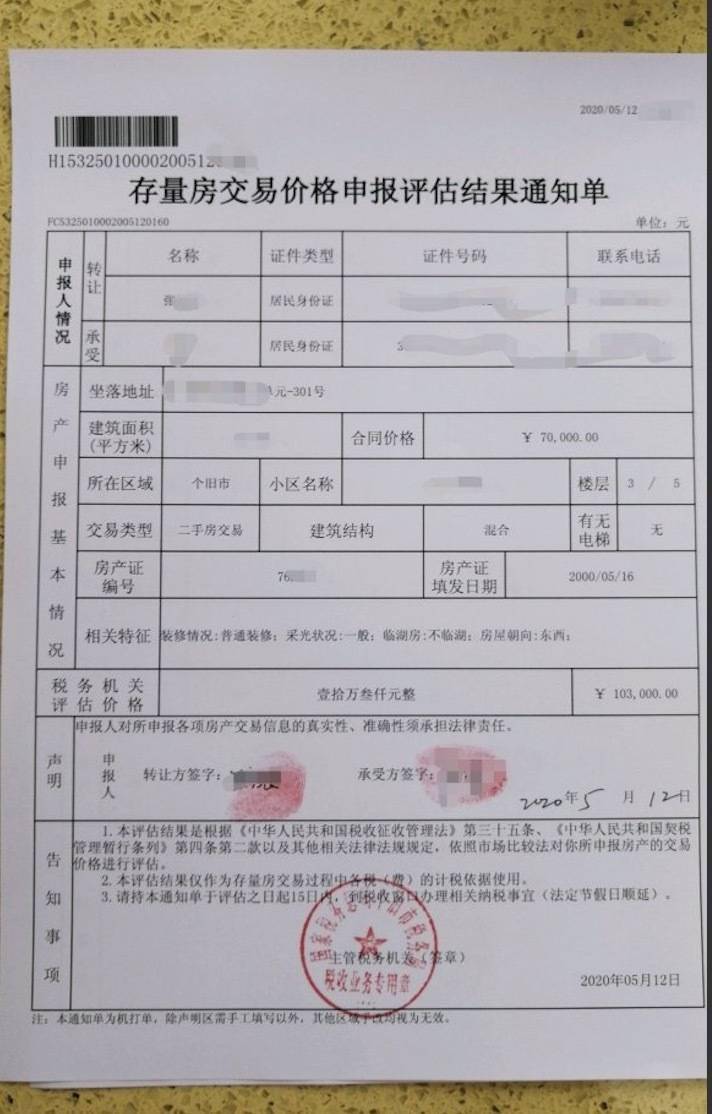 2020/05/12
H1532501000020051
存量房交易价格申报评估结果通知单
FC5325010002005120160
单位：元
申报人情况
转让
名称 证件类型 证件号码 联系电话
居民身份证
承受
居民身份证 3
房产申报基本情况
坐落地址 元-301号
建筑面积(平方米) 合同价格 ¥ 70,000.00
所在区域 个旧市 小区名称 楼层 3 / 5
交易类型 二手房交易 建筑结构 混合 有无电梯 无
房产证编号 76 房产证填发日期 2000/05/16
相关特征 装修情况:普通装修；采光状况:一般；临湖房:不临湖；房屋朝向:东西；
税务机关评估价格 壹拾万叁仟元整 ¥ 103,000.00
声明
申报人对所申报各项房产交易信息的真实性、准确性须承担法律责任。
申报人 转让方签字： 承受方签字：
2020年5月12日
告知事项
1.本评估结果是根据《中华人民共和国税收征收管理法》第三十五条、《中华人民共和国契税
管理暂行条列》第四条第二款以及其他相关法律法规规定，依照市场比较法对你所申报房产的交易
价格进行评估。
2.本评估结果仅作为存量房交易过程中各税（费）的计税依据使用。
3.请持本通知单于评估之日起15日内，到税收窗口办理相关纳税事宜（法定节假日顺延）。
主管税务机关（签章）
税收业务专用章
2020年05月12日
注：本通知单为机打单，除声明区需手工填写以外，其他区域手改均视为无效。